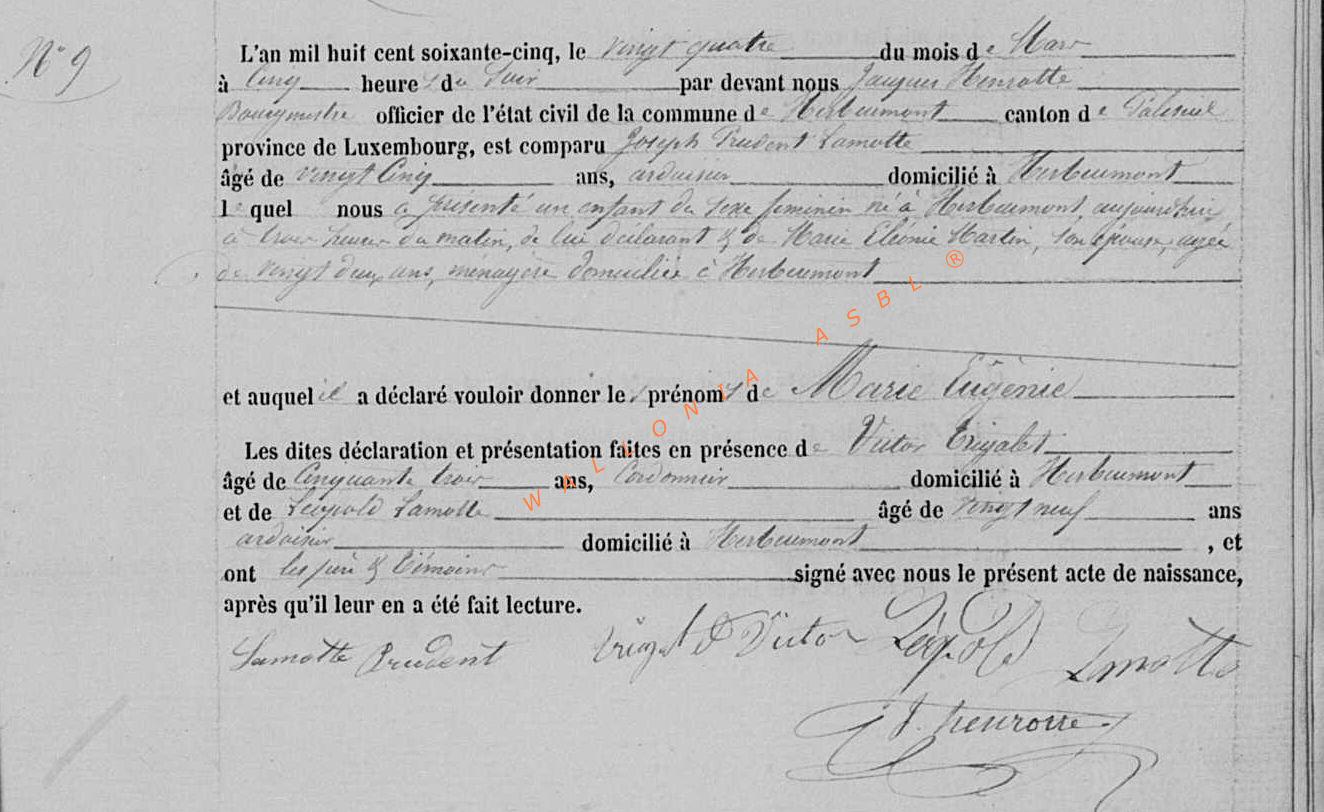 N° 9
L'an mil huit cent soixante-cinq, le vingt quatre du mois de Mars
à Cinq heures du Soir par devant nous Jacques Henrotte
Bourgmestre officier de l'état civil de la commune de Herbeumont canton de Paliseul
province de Luxembourg, est comparu Joseph Prudent Lamotte
âgé de vingt Cinq ans, ardoisier domicilié à Herbeumont
lequel nous a présenté un enfant du sexe feminin né à Herbeumont, aujourd'hui
à trois heures du matin, de lui déclarant & de Marie Eléonie Martin, son épouse, agée
de vingt deux ans, ménagère domiciliée à Herbeumont
et auquel il a déclaré vouloir donner les prénoms de Marie Eugènie
Les dites déclaration et présentation faites en présence de Victor
âgé de Cinquante trois ans, Cordonnier domicilié à Herbeumont
et de Léopold Lamotte âgé de vingt neuf ans
ardoisier domicilié à Herbeumont, et
ont les père & témoins signé avec nous le présent acte de naissance,
après qu'il leur en a été fait lecture.
Lamotte Prudent Victor Léopold Lamotte
J. henrotte
WALLONIA ASBL ®